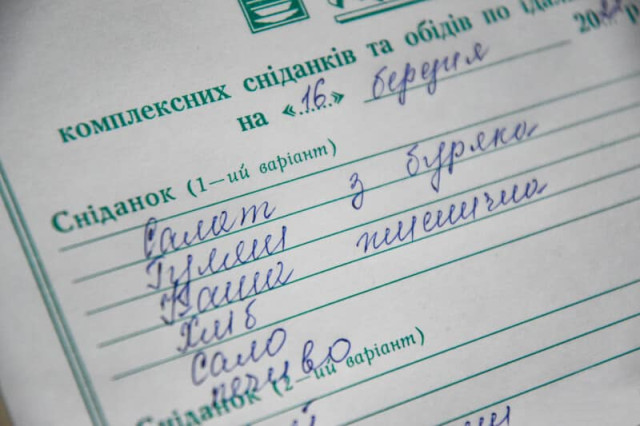 комплексних сніданків та обідів по
на «16» березня 20
Сніданок (1—ий варіант)
Салат з буряка
Гуляш
Каша пшенична
Хліб
Сало
печиво
Сніданок (2—ий варіант)